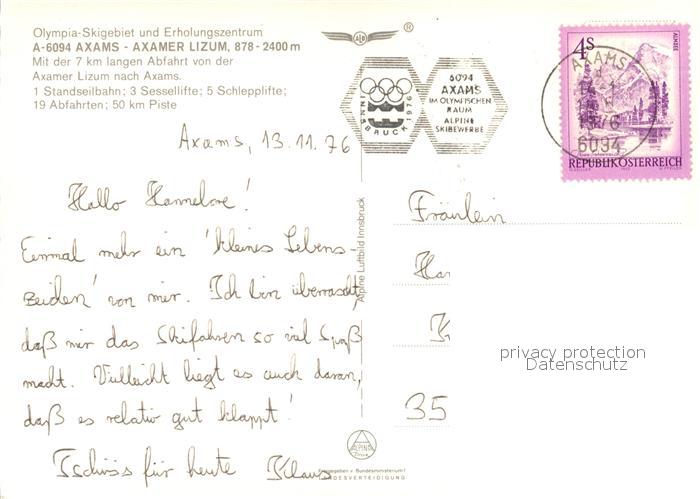 Olympia-Skigebiet und Erholungszentrum
A-6094 AXAMS - AXAMER LIZUM, 878 - 2400 m
Mit der 7 km langen Abfahrt von der
Axamer Lizum nach Axams.
1 Standseilbahn; 3 Sessellifte; 5 Schlepplifte;
19 Abfahrten; 50 km Piste
®
INNSBRUCK 1976
6094
AXAMS
IM OLYMPISCHEN
RAUM
ALPINE
SKIBEWERBE
4S
ALMSEE
AXAMS
6094
REPUBLIK ÖSTERREICH
Axams, 13.11.76
Hallo Hannelore!
Einmal mehr ein 'kleines Lebens-
zeichen' von mir. Ich bin überrascht,
daß mir das Skifahren so viel Spaß
macht. Vielleicht liegt es auch daran,
daß es relativ gut klappt!
Tschüss für heute Klaus
Alpine Luftbild Innsbruck
Fräulein
Han
K
35
privacy protection
Datenschutz
ALPINE
Freigegeben v. Bundesministerium f.
LANDESVERTEIDIGUNG